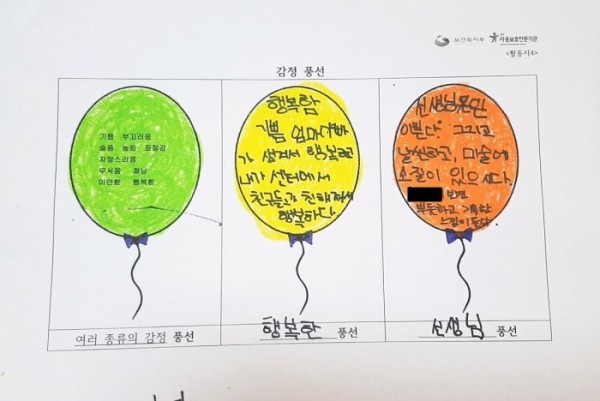 보건복지부 아동보호전문기관
<활동지4>
감정 풍선
기쁨 부끄러움
슬픔 놀람 좌절감
자랑스러움
무서움 화남
미안함 행복함
행복함
기쁨 엄마아빠
가 생겨서 행복하고
내가 센터에서
친구들과 친해져서
행복하다.
선생님은
이쁘다 그리고
날씬하고, 미술에
소질이 있으시다.
보면
뿌듯하고
느낌이 든다
여러 종류의 감정 풍선
행복한 풍선
선생님 풍선